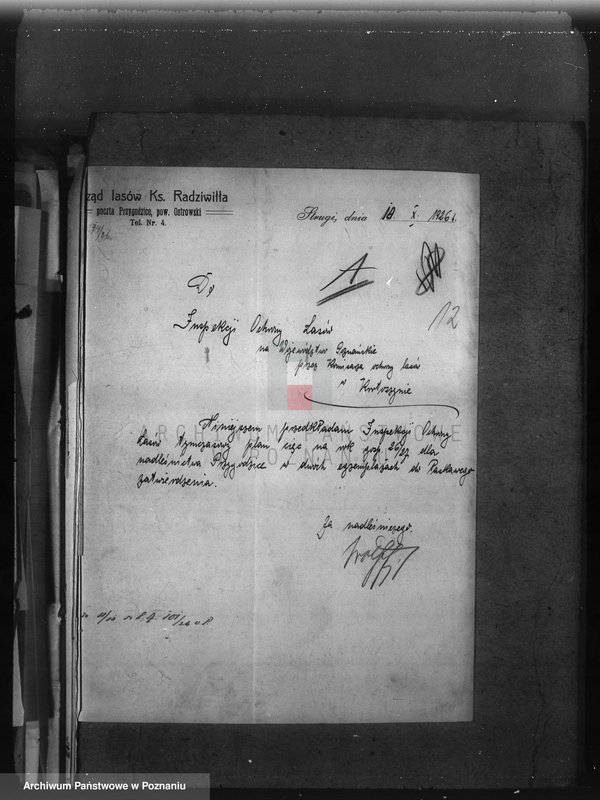 ząd lasów Ks. Radziwiłła
poczta Przygodzice, pow. Ostrowski
Tel. Nr. 4.
Strugi, dnia 18. X. 1926 r.
A
12
Do
Inspekcji Ochrony Lasów
na Województwo Poznańskie
przez Komisarza ochrony lasów
w Krotoszynie
Niniejszem przedkładam Inspekcji Ochrony
Lasów tymczasowy plan cięć na rok gosp. 26/27 dla
nadleśnictwa Przygodzice w dwóch egzemplarzach do łaskawego
zatwierdzenia.
Za nadleśniczego.
ARCHIWUM PAŃSTWOWE
POZNAŃ
Archiwum Państwowe w Poznaniu